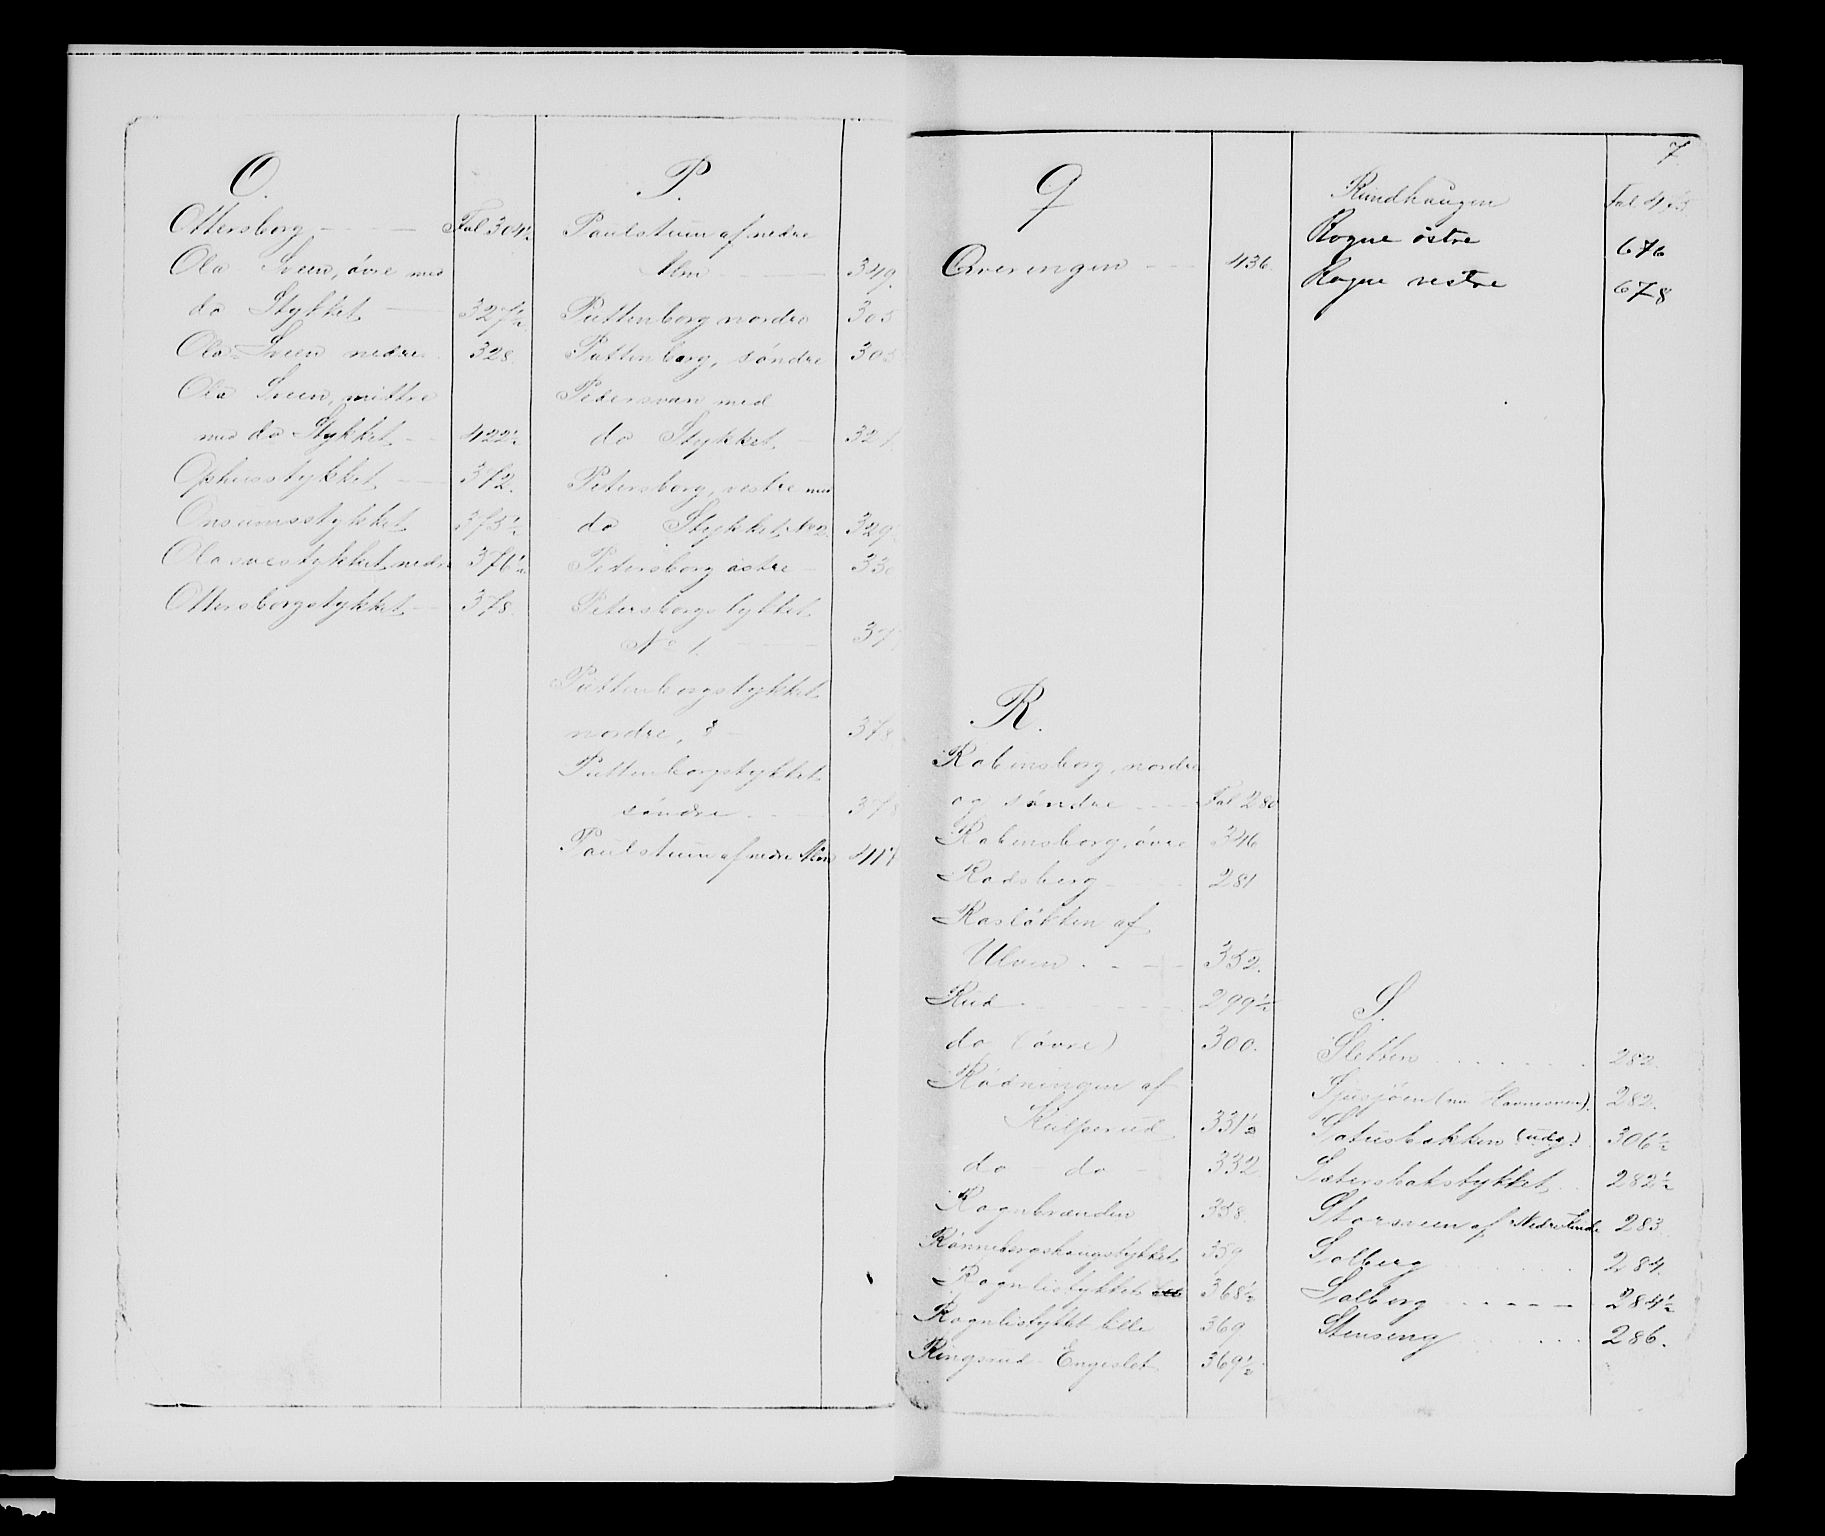 O.
Ottersborg - - - Fol 304½
Ola Sveen, øvre med
do Stykket 327½
Ola Sveen nedre 328.
Ola Sveen, mittre
med do Stykket - 422½
Ophusstykket - 372.
Onsumsstykket 375½
Olasvestykket, nedre 376½
Ottersborgstykket - 378.
P.
Paulstuen af nedre
Alm - 349.
Puttenborg nordre 305
Puttenborg, søndre 305
Petersvan med
do Stykket - 321
Petersborg, vestre med
do Stykket, No 2. 329
Petersborg østre - 330
Petersborgstykket
No 1. - - 37
Puttenborgstykket
nordre, -
378
Puttenborgstykket
søndre - 378
Paulstuen af nedre 417
7.
Q
Qveringen - - 436.
Rundhaugen Fol 4
Rogne østre 676
Rogne vestre 678
R.
Robensborg, nordre
og søndre - - Fol 280
Robensborg, øvre 346
Rodsberg - - 281
Rosløkken af
Ulven . - - 352.
Rud - - 299½
do (øvre) 300.
Rødningen af
Kulperud 331½
do - do - 332
Rognbrænden 358.
Rønnebergshaugstykket 359
Rognlistykket 368½
Rognlistykket lille 369
Ringsrud Engeslet 369½
S.
Sletten . . . . 282.
Sjusjøen (nu Havnesveen). 282.
Sotusbakken (udg.) 306½
Sætersbakstykket . . 282½
Storsveen af Nedre 283.
Solberg . . . . 284.
Solberg - - - - 284½
Stenseng . . . . 286.